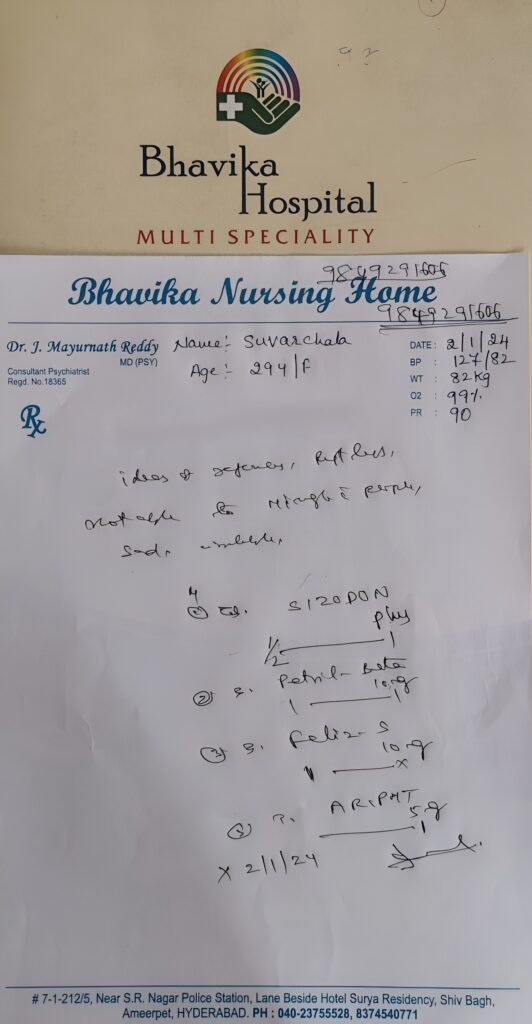 Bhavika
Hospital
MULTI SPECIALITY
9849291606
Bhavika Nursing Home
9849291606
Dr. J. Mayurnath Reddy
MD (PSY)
Consultant Psychiatrist
Regd. No.18365
Name:- Suvarchala
Age:- 294/F
DATE : 2/1/24
BP : 127/82
WT : 82kg
O2 : 99%
PR : 90
Rx
ideas of
not able to Mingle people,
Sad,
SIZODON
plus
1/2 1
② Petril- Beta
10mg
1 1
③ Feliz- S
10mg
x
T. ARIPMT
5g
1
x 2/1/24
# 7-1-212/5, Near S.R. Nagar Police Station, Lane Beside Hotel Surya Residency, Shiv Bagh,
Ameerpet, HYDERABAD. PH : 040-23755528, 8374540771